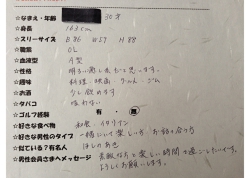 ☆なまえ・年齢 30才
☆身長 163cm
☆スリーサイズ B86 W59 H88
☆職業 OL
☆血液型 A型
☆性格 明るい方だと思います。
☆趣味 料理・映画
☆お酒 少し飲めます
☆タバコ 吸わない
☆ゴルフ経験 無
☆好きな食べ物 和食、イタリアン
☆好きな男性のタイプ 一緒にいて楽しい方
☆似ている?有名人 ほしのあき
☆男性会員さまへメッセージ 素敵な方と楽しい時間を過ごしたいです。
よろしくお願いします。